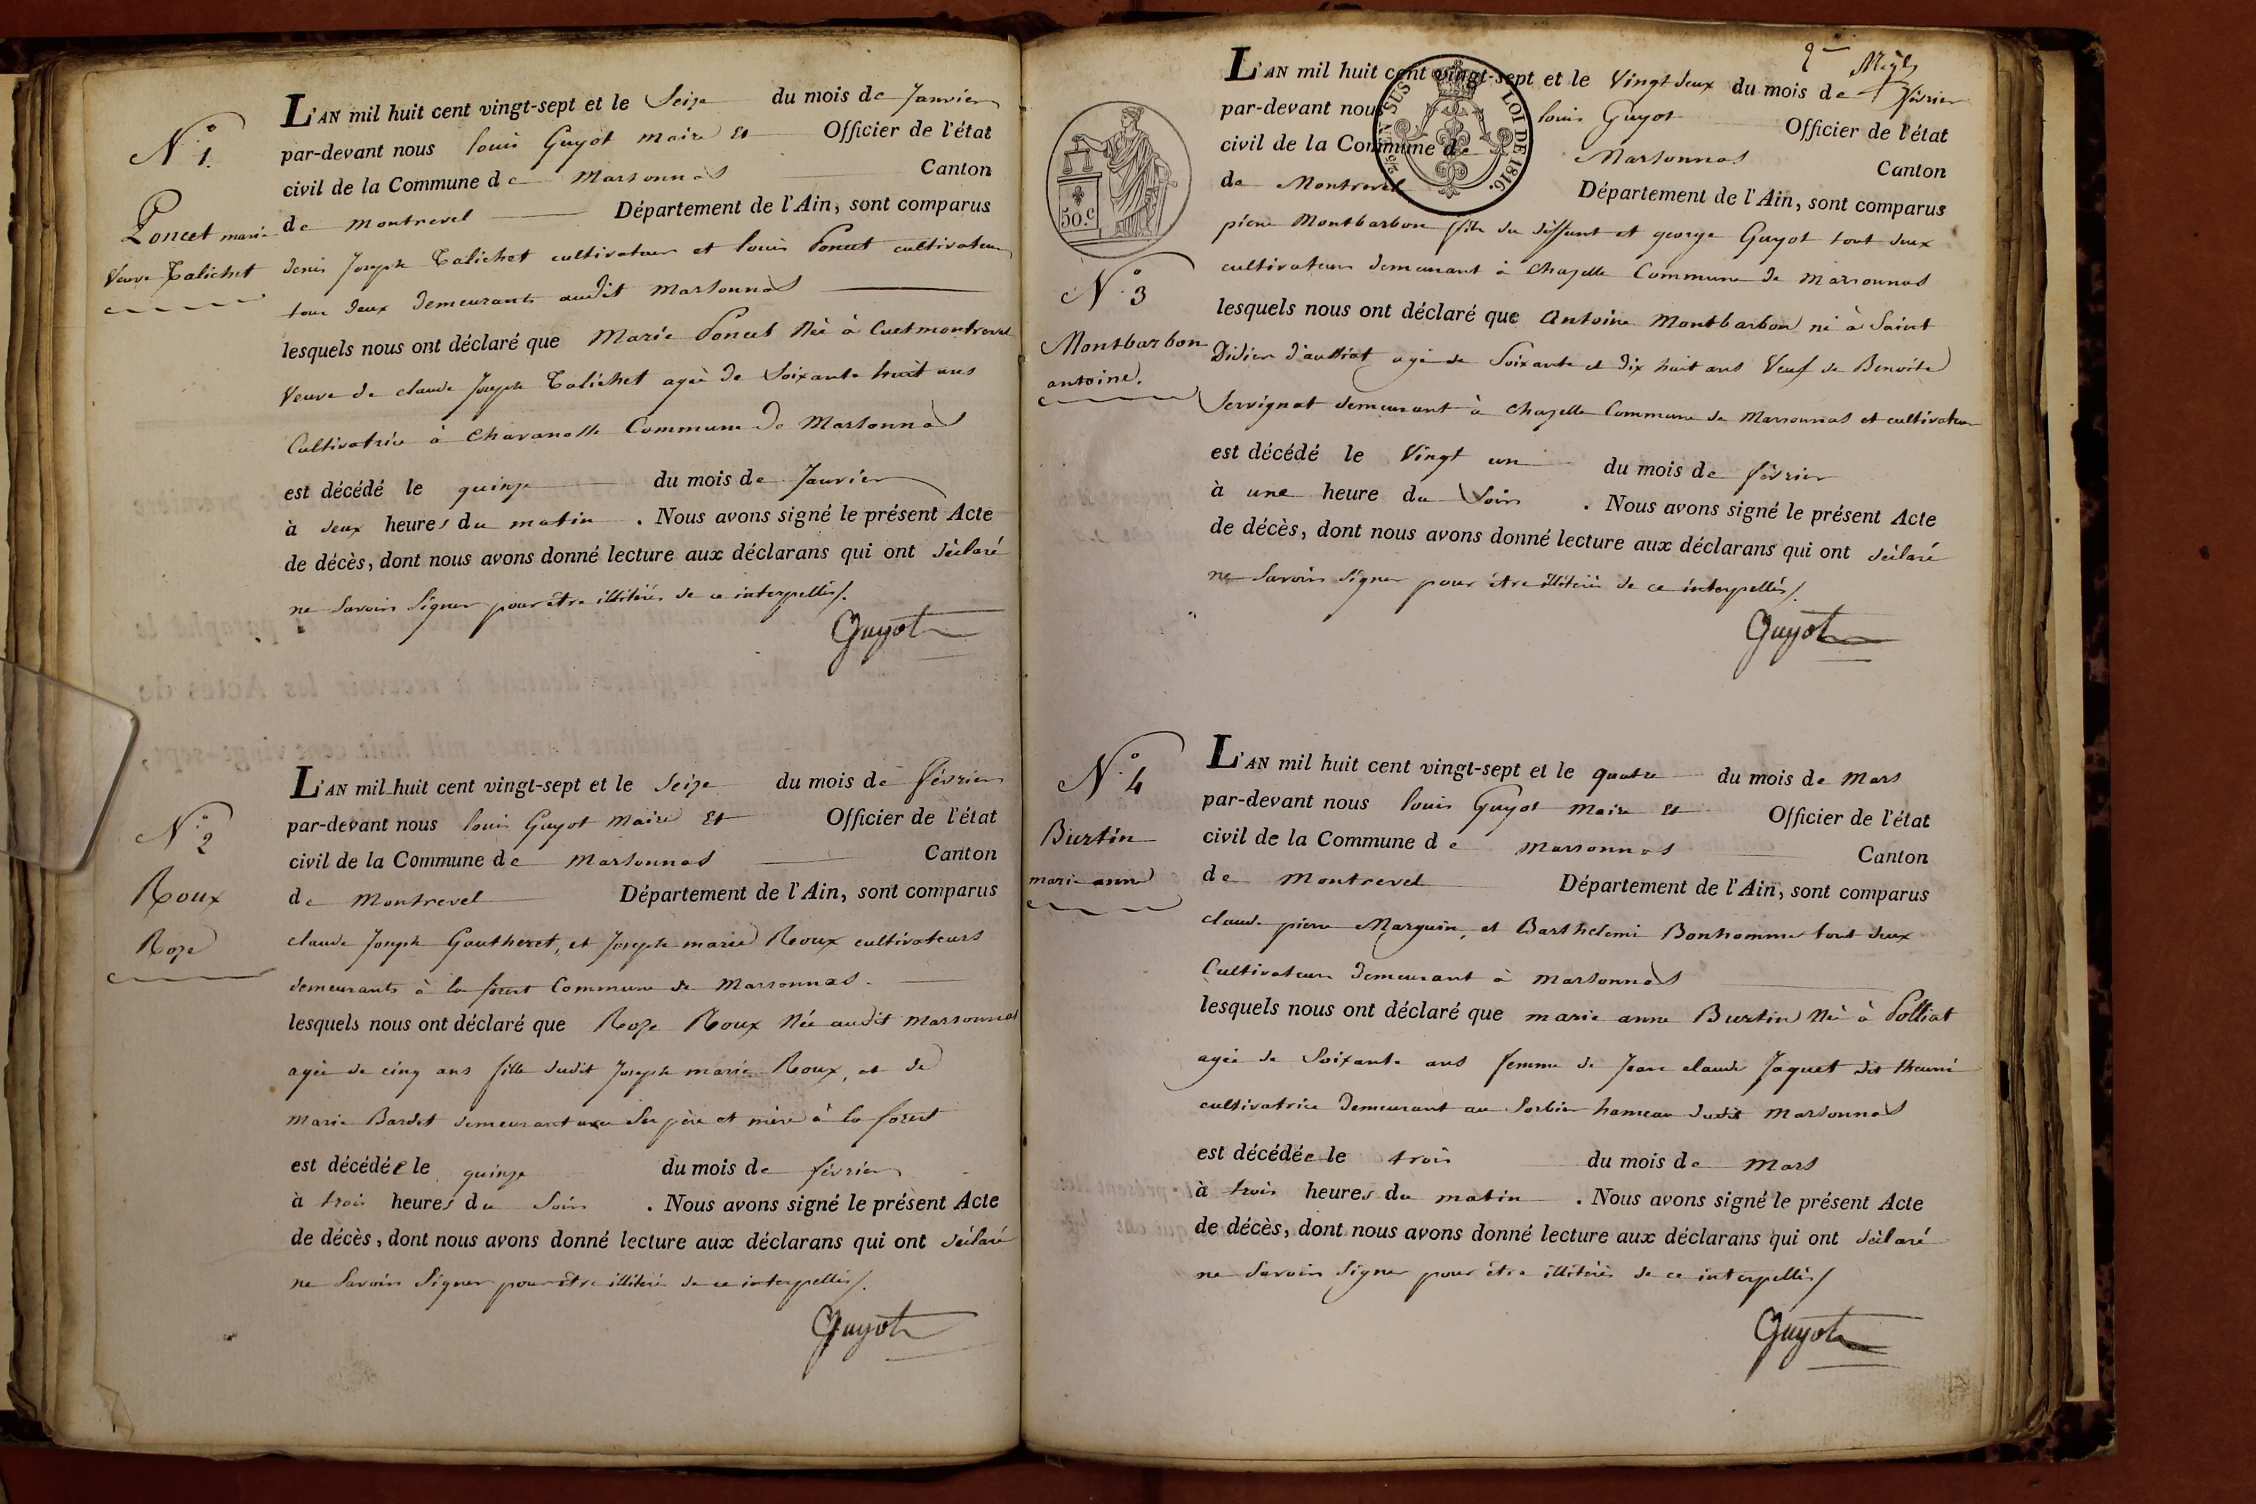 N° 1
Poncet marie
Veuve Calichet
L'AN mil huit cent vingt-sept et le Seize du mois de Janvier
par-devant nous louis Guyot maire et Officier de l'état
civil de la Commune de Marsonnas Canton
de montrevel Département de l'Ain, sont comparus
denis Joseph Calichet cultivateur et louis Poncet cultivateur
tous deux demeurants audit Marsonnas
lesquels nous ont déclaré que Marie Poncet Née à Cuet montrevel
Veuve de claude Joseph Calichet agée de Soixante huit ans
Cultivatrice à Chavanosse Commune de Marsonnas
est décédé le quinze du mois de Janvier
à deux heures du matin . Nous avons signé le présent Acte
de décès, dont nous avons donné lecture aux déclarans qui ont déclaré
ne Savoir Signer pour être illitérés de ce interpellés/.
Guyot
N° 2
Roux
Roze
L'AN mil huit cent vingt-sept et le Seize du mois de février
par-devant nous louis Guyot Maire Et Officier de l'état
civil de la Commune de Marsonnas Canton
de Montrevel Département de l'Ain, sont comparus
claude Joseph Goutheret, et Joseph marie Roux cultivateurs
demeurants à la forest Commune de Marsonnas.
lesquels nous ont déclaré que Roze Roux Née audit Marsonnas
agée de cinq ans fille dudit Joseph marie Roux, et de
Marie Bardet demeurant avec Ses père et mère à la forest
est décédée le quinze du mois de février
à trois heures du Soir . Nous avons signé le présent Acte
de décès, dont nous avons donné lecture aux déclarans qui ont déclaré
ne Savoir Signer pour être illitérés de ce interpellés/.
Guyot
50.c
EN SUS
LOI DE 1816.
N° 3
Montbarbon
antoine.
L'AN mil huit cent vingt-sept et le Vingt deux du mois de février
par-devant nous louis Guyot Officier de l'état
civil de la Commune de Marsonnas Canton
de Montrevel Département de l'Ain, sont comparus
pierre Montbarbon fils du deffunt et george Guyot tout deux
cultivateurs demeurant à Chazelle Commune de Marsonnas
lesquels nous ont déclaré que Antoine Montbarbon né à Saint
Didier d'aussiat agé de Soixante et dix huit ans Veuf de Benoite
Servignat demeurant à Chazelle Commune de Marsonnas et cultivateur
est décédé le Vingt un du mois de février
à une heure du Soir . Nous avons signé le présent Acte
de décès, dont nous avons donné lecture aux déclarans qui ont déclaré
ne Savoir Signer pour être illitérés de ce interpellés/.
Guyot
N° 4
Burtin
marie anne
L'AN mil huit cent vingt-sept et le quatre du mois de Mars
par-devant nous louis Guyot Maire et Officier de l'état
civil de la Commune de Marsonnas Canton
de Montrevel Département de l'Ain, sont comparus
claude pierre Marguin, et Barthelemi Bonhomme tout deux
Cultivateurs demeurant à Marsonnas
lesquels nous ont déclaré que marie anne Burtin Née à Polliat
agée de Soixante ans femme de Jean claude Jaquet dit
cultivatrice demeurant au Sorbier hameau dudit Marsonnas
est décédée le trois du mois de Mars
à trois heures du matin . Nous avons signé le présent Acte
de décès, dont nous avons donné lecture aux déclarans qui ont déclaré
ne Savoir Signer pour être illitérés de ce interpellés/
Guyot